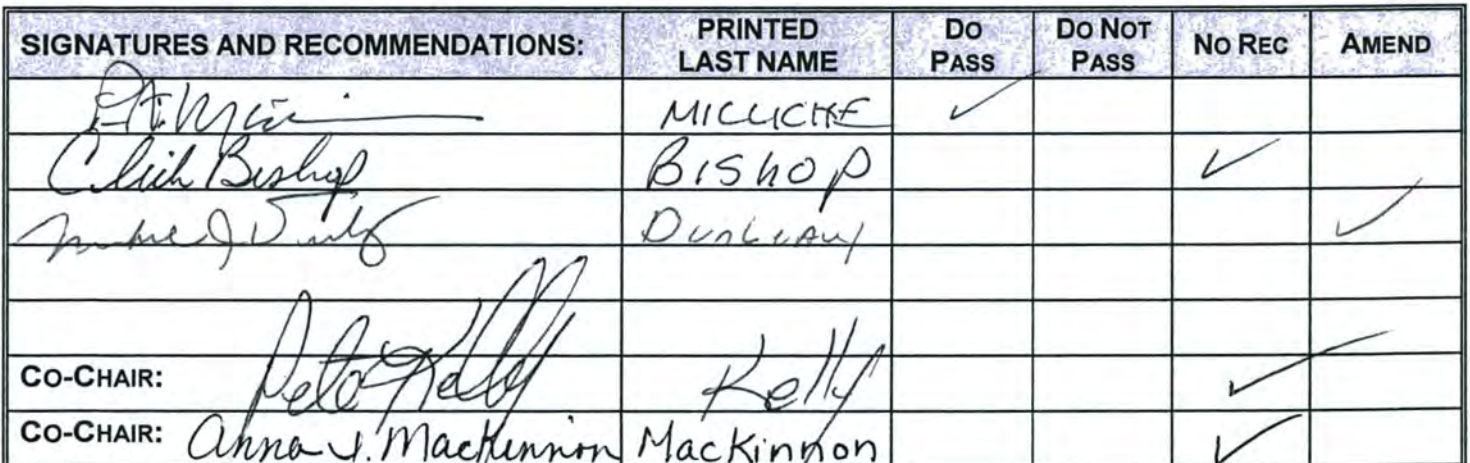 SIGNATURES AND RECOMMENDATIONS: PRINTED LAST NAME DO PASS DO NOT PASS NO REC AMEND
MICCICHE ✓
Click Bishop BISHOP ✓
DUNLEAVY ✓
CO-CHAIR: Pete Kelly Kelly ✓
CO-CHAIR: Anna I. MacKinnon MacKinnon ✓